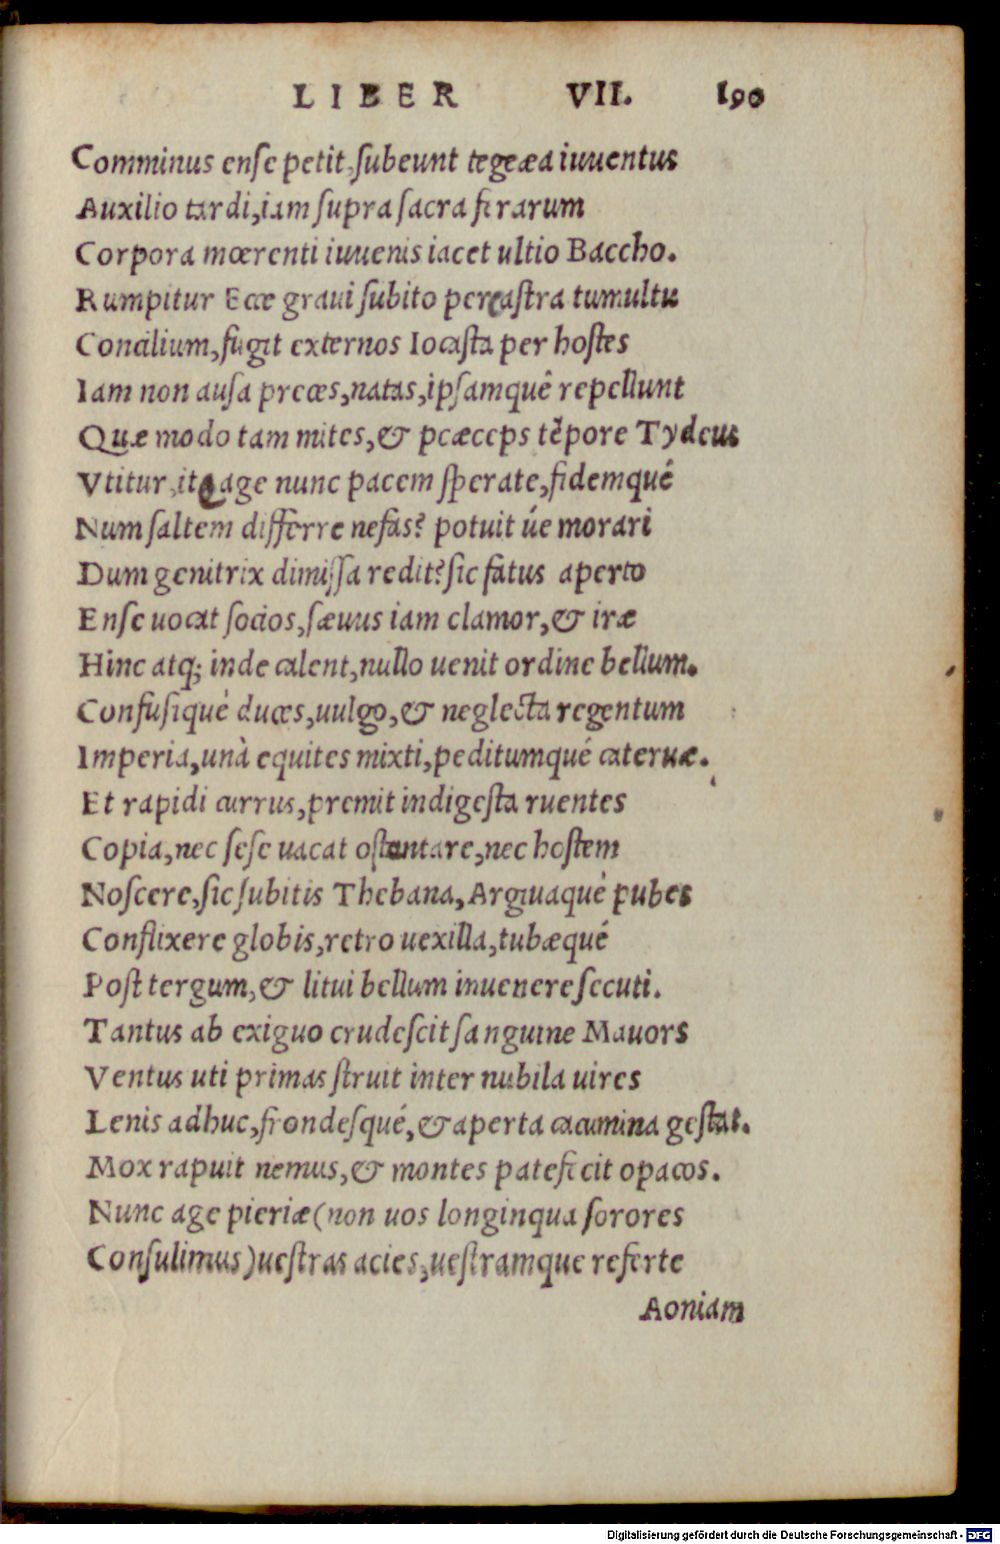 LIBER VII. 190
Comminus enſe petit, ſubeunt tegeæa iuuentus
Auxilio tardi, iam ſupra ſacra ferarum
Corpora mœrenti iuuenis iacet ultio Baccho.
Rumpitur Ecce graui ſubito per caſtra tumultu
Concilium, fugit externos Iocaſta per hoſtes
Iam non auſa preces, natas, ipſamquê repellunt
Quæ modo tam mites, & pcæceps tẽpore Tydeus
Vtitur, ite age nunc pacem ſperate, fidemqué
Num ſaltem differre nefas? potuit úe morari
Dum genitrix dimiſſa redit? ſic fatus aperto
Enſe uocat ſocios, ſæuus iam clamor, & iræ
Hinc atq; inde calent, nullo uenit ordine bellum.
Confuſiquè duces, uulgo, & neglecta regentum
Imperia, unà equites mixti, peditumqué cateruæ.
Et rapidi currus, premit indigeſta ruentes
Copia, nec ſeſe uacat oſtentare, nec hoſtem
Noſcere, ſic ſubitis Thebana, Argiuaquè pubes
Conflixere globis, retro uexilla, tubæqué
Poſt tergum, & litui bellum inuenere ſecuti.
Tantus ab exiguo crudeſcit ſanguine Mauors
Ventus uti primas ſtruit inter nubila uires
Lenis adhuc, frondeſqué, & aperta cacumina geſtat.
Mox rapuit nemus, & montes patefecit opacos.
Nunc age pieriæ (non uos longinqua ſorores
Conſulimus) ueſtras acies, ueſtramque referte
Aoniam
Digitalisierung gefördert durch die Deutsche Forschungsgemeinschaft - DFG